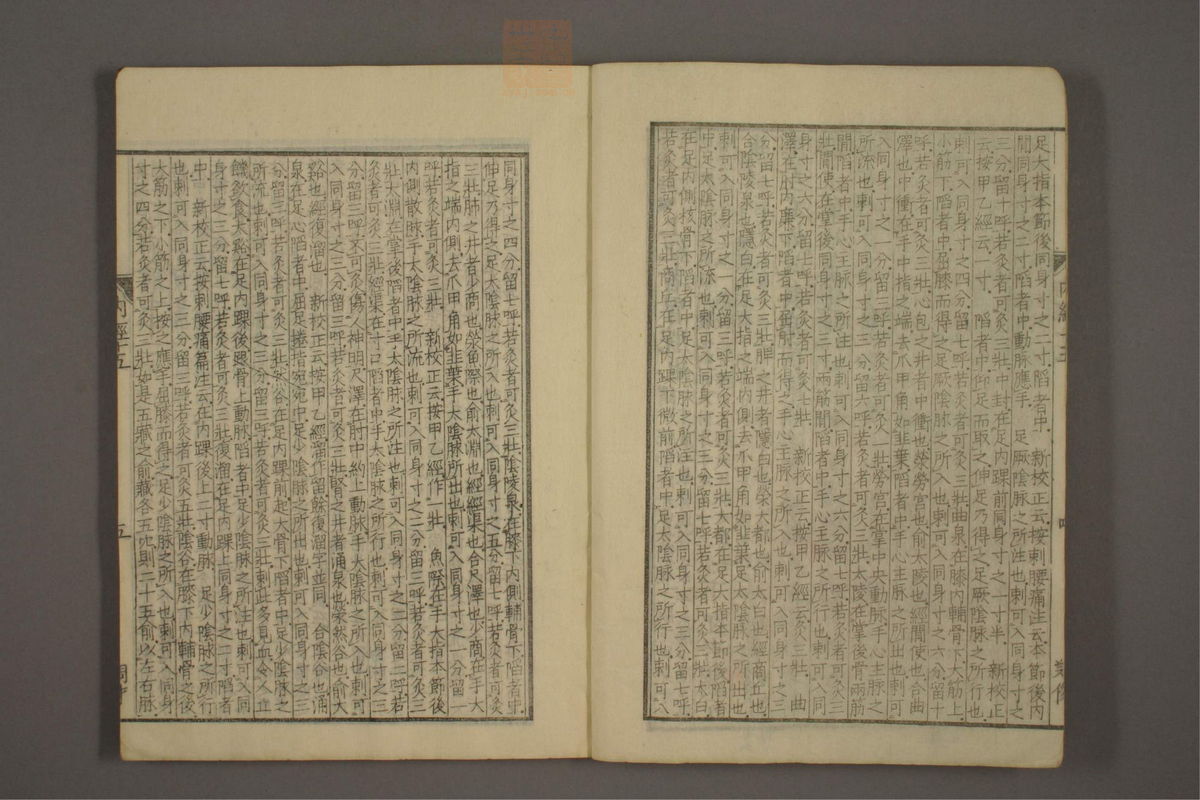 足大指本節後同身寸之二寸陷者中　新校正云按刺腰痛注云本節後內
間同身寸之二寸陷者中動脉應手　足厥陰脉之所注也刺可入同身寸之
三分留十呼若灸者可灸三壯中封在足內踝前同身寸之一寸半　新校正
云按甲乙經云一寸　陷者中仰足而取之伸足乃得之足厥陰脉之所行也
刺可入同身寸之四分留七呼若灸者可灸三壯曲泉在膝內輔骨下大筋上
小筋下陷者中屈膝而得之足厥陰脉之所入也刺可入同身寸之六分留十
呼若灸者可灸三壯心包之井者中衝也滎勞宮也俞太陵也經間使也合曲
澤也中衝在手中指之端去爪甲角如韭葉陷者中手心主脉之所出也刺可
入同身寸之一分留三呼若灸者可灸一壯勞宮在掌中央動脉手心主脉之
所流也刺可入同身寸之三分留六呼若灸者可灸三壯太陵在掌後骨兩筋
間陷者中手心主脉之所注也刺可入同身寸之六分留七呼若灸者可灸三
壯間使在掌後同身寸之三寸兩筋間陷者中手心主脉之所行也刺可入同
身寸之六分留七呼若灸者可灸七壯　新校正云按甲乙經云灸三壯　曲
澤在肘內廉下陷者中屈肘而得之手心主脉之所入也刺可入同身寸之三
分留七呼若灸者可灸三壯脾之井者隱白也滎大都也俞太白也經商丘也
合陰陵泉也隱白在足大指之端內側去爪甲角如韭葉足太陰脉之所出也
刺可入同身寸之一分留三呼若灸者可灸三壯大都在足大指本節後陷者
中足太陰脉之所流也刺可入同身寸之三分留七呼若灸者可灸三壯太白
在足內側核骨下陷者中足太陰脉之所注也刺可入同身寸之三分留七呼
若灸者可灸三壯商丘在足內踝下微前陷者中足太陰脉之所行也刺可入
同身寸之四分留七呼若灸者可灸三壯陰陵泉在膝下內側輔骨下陷者中
伸足乃得之足太陰脉之所入也刺可入同身寸之五分留七呼若灸者可灸
三壯肺之井者少商也滎魚際也俞太淵也經經渠也合尺澤也少商在手大
指之端內側去爪甲角如韭葉手太陰脉所出也刺可入同身寸之一分留一
呼若灸者可灸三壯　新校正云按甲乙經作一壯　魚際在手大指本節後
內側散脉手太陰脉之所流也刺可入同身寸之二分留三呼若灸者可灸三
壯太淵在掌後陷者中手太陰脉之所注也刺可入同身寸之二分留二呼若
灸者可灸三壯經渠在寸口陷者中手太陰脉之所行也刺可入同身寸之三
分留三呼不可灸傷人神明尺澤在肘中約上動脉手太陰脉之所入也刺可
入同身寸之三分留三呼若灸者可灸三壯腎之井者涌泉也滎然谷也俞大
谿也經復溜也　新校正云按甲乙經溜作留餘復溜字並同　合陰谷也涌
泉在足心陷者中屈足捲指宛宛中足少陰脉之所出也刺可入同身寸之三
分留三呼若灸者可灸三壯然谷在足內踝前起大骨下陷者中足少陰脉之
所流也刺可入同身寸之三分留三呼若灸者可灸三壯刺此多見血令人立
饑欲食太谿在足內踝後跟骨上動脉陷者中足少陰脉之所注也刺可入同
身寸之三分留七呼若灸者可灸三壯復溜在足內踝上同身寸之二寸陷者
中　新校正云按刺腰痛篇注云在內踝後上二寸動脉　足少陰脉之所行
也刺可入同身寸之三分留三呼若灸者可灸五壯陰谷在膝下內輔骨之後
大筋之下小筋之上按之應手屈膝而得之足少陰脉之所入也刺可入同身
寸之四分若灸者可灸三壯如是五藏之俞藏各五穴則二十五俞以左右脉
內經五
五